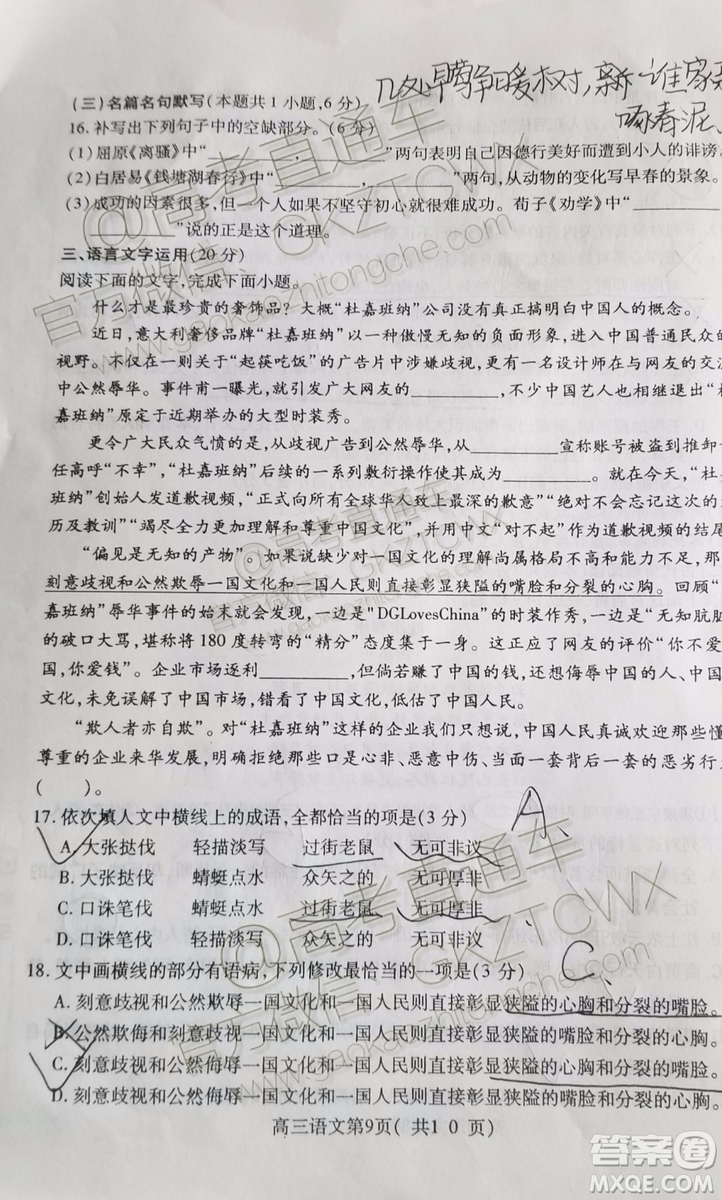 几处早莺争暖树,新 谁家
啄春泥。
(三)名篇名句默写(本题共1小题,6分)
16.补写出下列句子中的空缺部分。(6分)
(1)屈原《离骚》中“________,________”两句表明自己因德行美好而遭到小人的诽谤。
(2)白居易《钱塘湖春行》中“________,________”两句,从动物的变化写早春的景象。
(3)成功的因素很多,但一个人如果不坚守初心就很难成功。荀子《劝学》中“________
________”说的正是这个道理。
三、语言文字运用(20分)
阅读下面的文字,完成下面小题。
什么才是最珍贵的奢饰品?大概“杜嘉班纳”公司没有真正搞明白中国人的概念。
近日,意大利奢侈品牌“杜嘉班纳”以一种傲慢无知的负面形象,进入中国普通民众的
视野。不仅在一则关于“起筷吃饭”的广告片中涉嫌歧视,更有一名设计师在与网友的交流
中公然辱华。事件甫一曝光,就引发广大网友的________,不少中国艺人也相继退出“杜
嘉班纳”原定于近期举办的大型时装秀。
更令广大民众气愤的是,从歧视广告到公然辱华,从________宣称账号被盗到
任高呼“不幸”,“杜嘉班纳”后续的一系列敷衍操作使其成为________。就在今天,“杜
班纳”创始人发道歉视频,“正式向所有全球华人致上最深的歉意”“绝对不会忘记这次的
历及教训”“竭尽全力更加理解和尊重中国文化”,并用中文“对不起”作为道歉视频的结尾
“偏见是无知的产物”。如果说缺少对一国文化的理解尚属格局不高和能力不足,那
刻意歧视和公然欺辱一国文化和一国人民则直接彰显狭隘的嘴脸和分裂的心胸。回顾“
嘉班纳”辱华事件的始末就会发现,一边是“DGLovesChina”的时装作秀,一边是“无知肮脏
的破口大骂,堪称将180度转弯的“精分”态度集于一身。这正应了网友的评价“你不爱
国,你爱钱”。企业市场逐利________,但倘若赚了中国的钱,还想侮辱中国的人、中国
文化,未免误解了中国市场,错看了中国文化,低估了中国人民。
“欺人者亦自欺”。对“杜嘉班纳”这样的企业我们只想说,中国人民真诚欢迎更多懂
尊重的企业来华发展,明确拒绝那些口是心非、恶意中伤、当面一套背后一套的恶劣行
( )。
17.依次填入文中横线上的成语,全都恰当的项是(3分)
A.
A.大张挞伐 轻描淡写 过街老鼠 无可非议
B.大张挞伐 蜻蜓点水 众矢之的 无可厚非
C.口诛笔伐 蜻蜓点水 过街老鼠 无可厚非
D.口诛笔伐 轻描淡写 众矢之的 无可非议
18.文中画横线的部分有语病,下列修改最恰当的一项是(3分)
C.
A.刻意歧视和公然欺辱一国文化和一国人民则直接彰显狭隘的心胸和分裂的嘴脸。
B.公然欺侮和刻意歧视一国文化和一国人民则直接彰显狭隘的嘴脸和分裂的心胸。
C.刻意歧视和公然侮辱一国文化和一国人民则直接彰显狭隘的心胸和分裂的嘴脸。
D.刻意歧视和公然侮辱一国文化和一国人民则直接彰显狭隘的嘴脸和分裂的心胸。
高三语文第9页( 共1 0 页)
@高考直通车
官方微信:GKZTCWX
www.gaokaozhitongche.com
@高考直通车
官方微信:GKZTCWX
www.gaokaozhitongche.com
答案卷
MXQE.COM